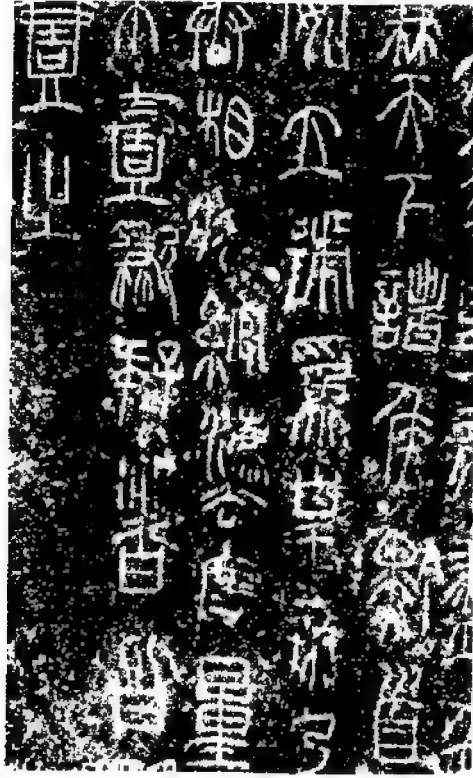 兼天下諸侯黔首
安立號為皇帝乃
丞相狀綰灋度量
不壹歉疑者皆
壹之